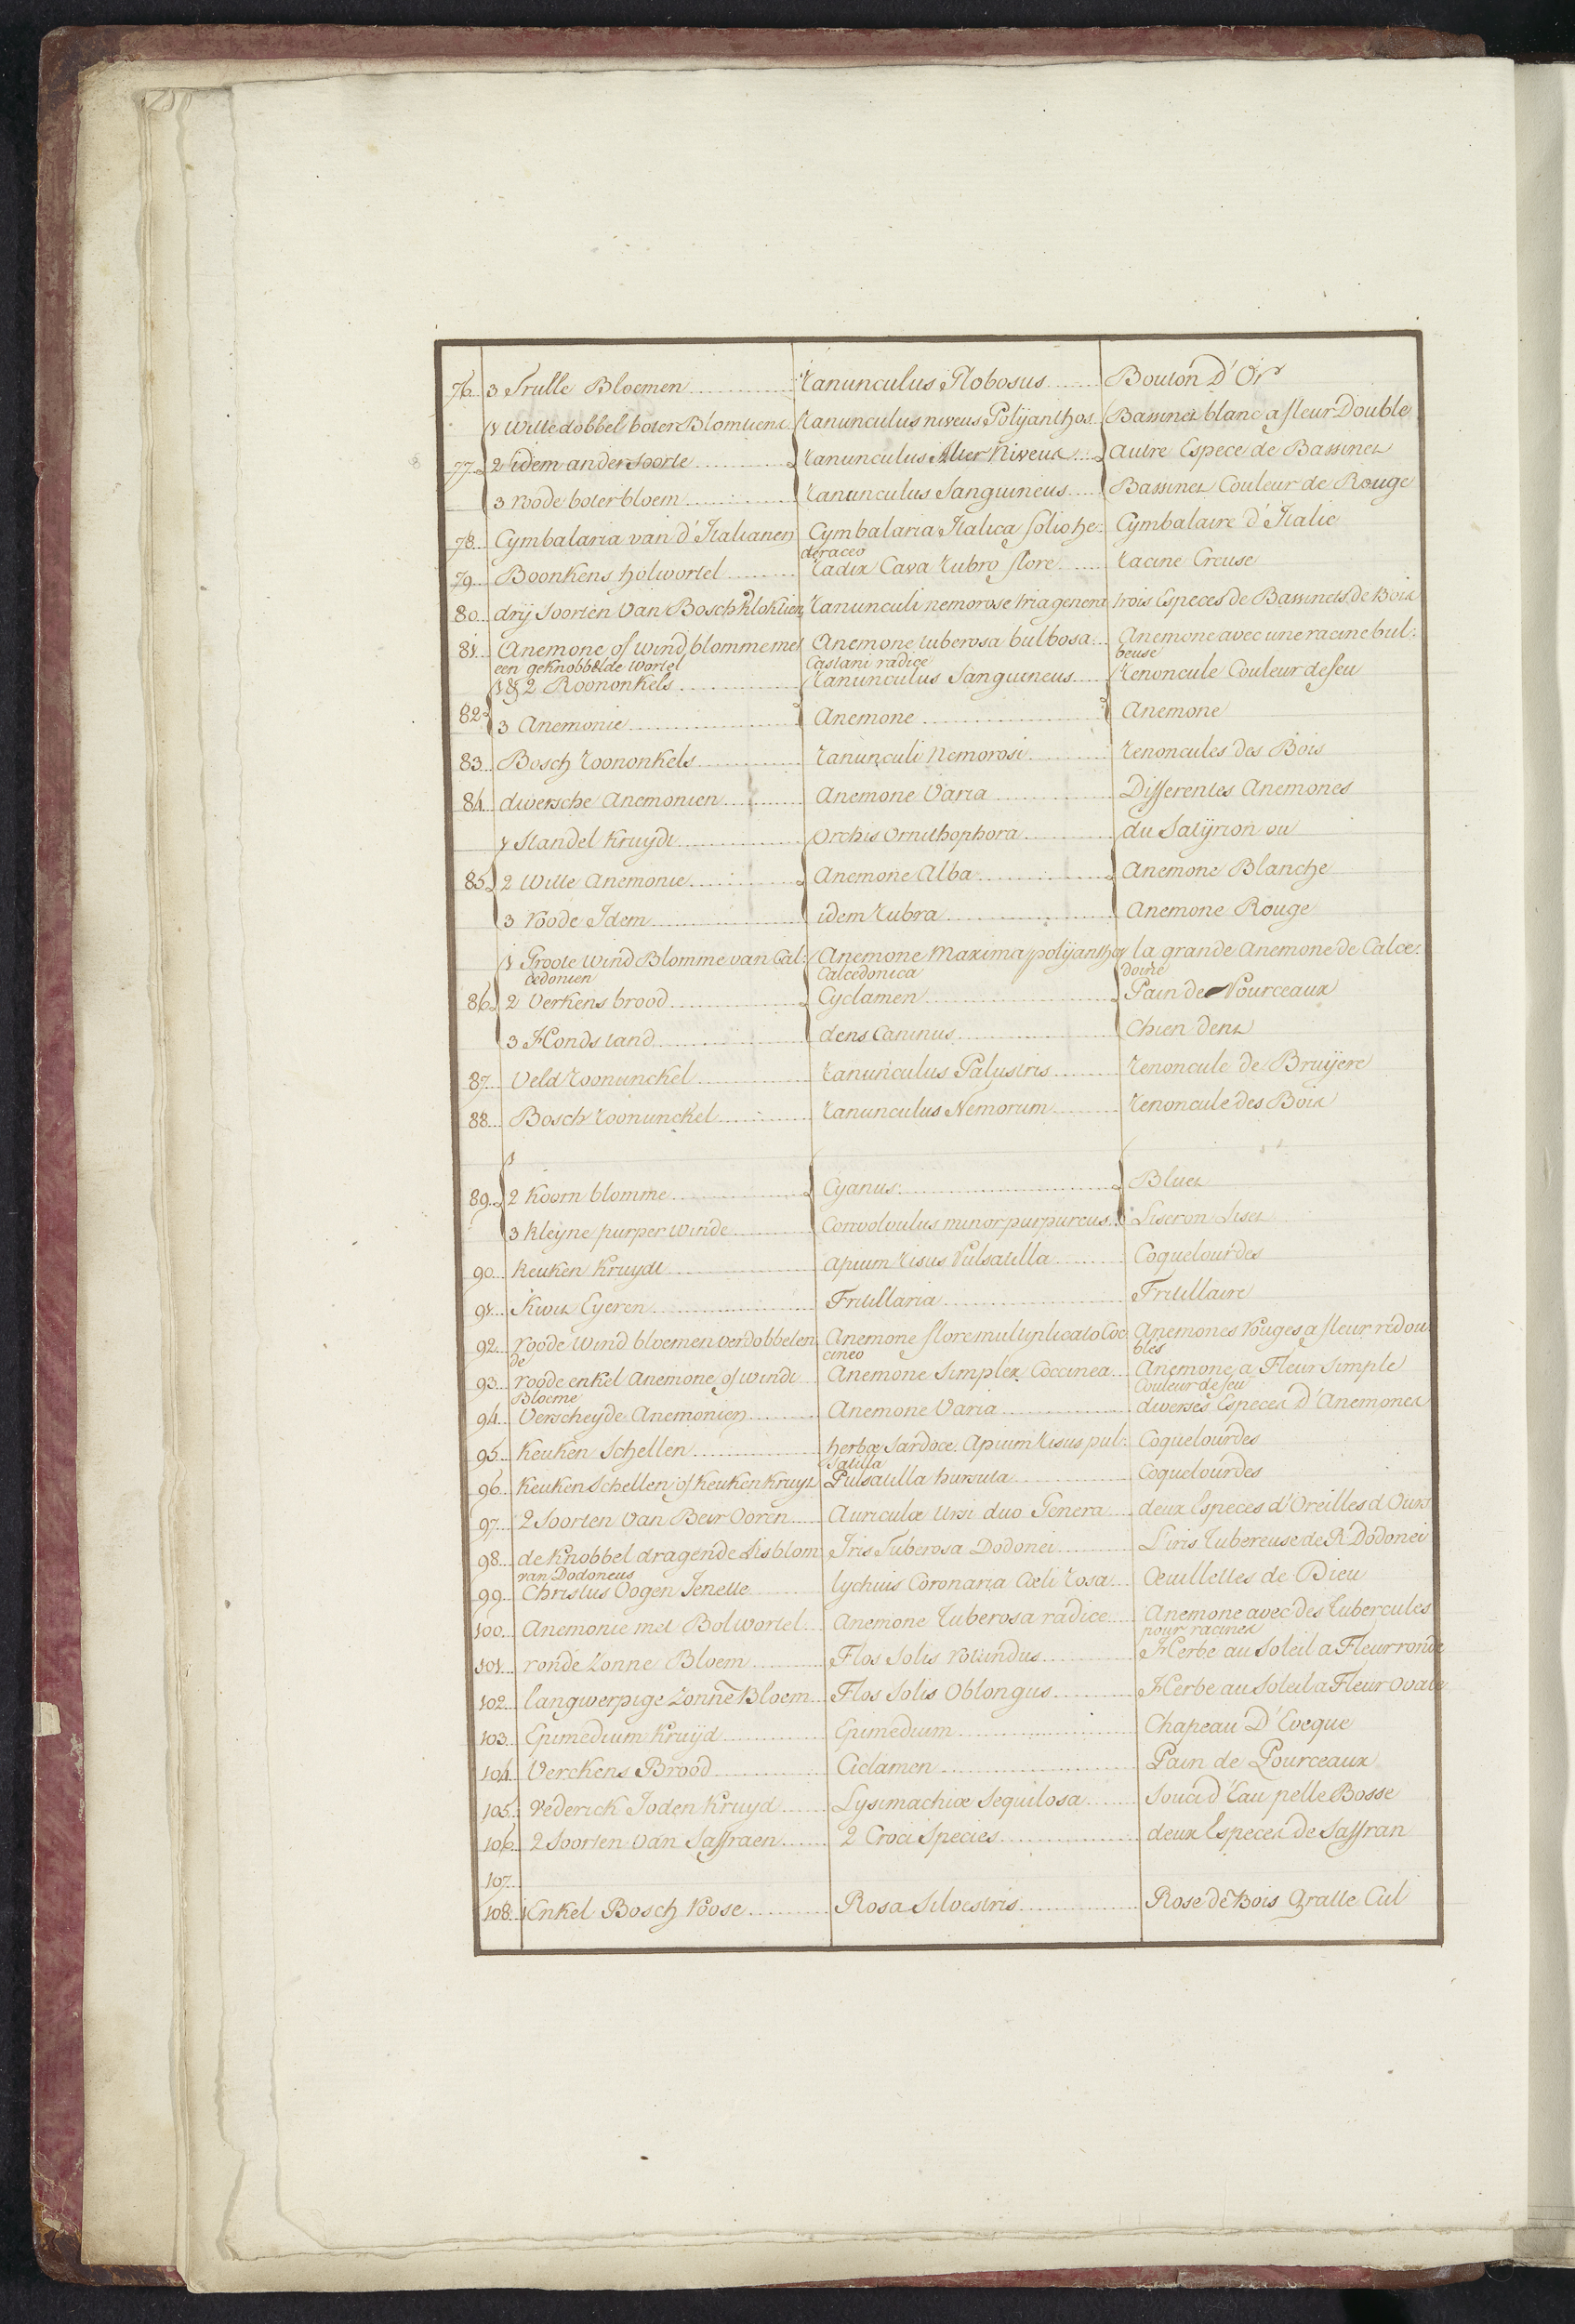 76. 3 Trulle Bloemen Ranunculus Globosus Bouton D'Or
1 Witte dobbel boter Blomtiens Ranunculus niveus Polÿanthos Bassinet blanc a fleur Double
77. 2 idem ander soorte Ranunculus Alter Niveus autre Espece de Bassinet
3 roode boterbloem Ranunculus Sanguineus Bassinet Couleur de Rouge
78. Cymbalaria van d'Italianen Cymbalaria Italica folio he: Cymbalaire d'Italie
deraceo
79. Boonkens holwortel Radix Cava Rubro flore racine Creuse
80. drÿ Soorten Van Bosch Kloktien Ranunculi nemorose tria genera trois Especes de Bassinets de Bois
81. Anemone of wind blomme met Anemone tuberosa bulbosa Anemone avec une racine bul:
een geknobbelde wortel Castani radice beuse
1 & 2 Roononkels Ranunculus Sanguineus Renoncule Couleur de feu
82 3 Anemonie Anemone Anemone
83. Bosch Roononkels Ranunculi Nemorosi Renoncules des Bois
84. diversche Anemonien Anemone Varia Differentes Anemones
1 Standel Kruÿdt Orchis Ornithophora du Satÿrion ou
85. 2 Witte Anemonie Anemone Alba Anemone Blanche
3 roode Idem idem Rubra Anemone Rouge
1 Groote Wind Blomme van Cal: Anemone Maxima polÿanthos la grande Anemone de Calce:
cedonien Calcedonica doine
86. 2 Verkens brood Cyclamen Pain de Pourceaux
3 Honds tand dens Caninus Chien dent
87. Veld Roonunckel Ranunculus Palustris Renoncule de Bruÿere
88. Bosch Roonunckel Ranunculus Nemorum Renoncule des Bois
1
89. 2 Koorn blomme Cyanus Bluet
3 Kleÿne purper winde Convolvulus minor purpureus Liseron Liset
90. Keuken Kruydt apium risus Pulsatilla Coquelourdes
91. Kivit Eyeren Fritillaria Fritillaire
92. roode Wind bloemen verdobbelen Anemone flore multiplicato Coc Anemones rouges a fleur redou
de cineo bles
93. roode enkel Anemone of winde Anemone Simplex Coccinea Anemone a Fleur simple
Bloeme Couleur de feu
94. Verscheyde Anemonien Anemone Varia diverses Especes D'Anemones
95. Keuken Schellen herbæ Sardoce. Apium risus pul: Coquelourdes
satilla
96. Keuken Schellen of Keuken Kruyt Pulsatilla hursuta Coquelourdes
97. 2 Soorten Van Beir Ooren Auriculæ Ursi duo Genera deux Especes d'Oreilles d'Ours
98. de Knobbel dragende Lisblom Iris Tuberosa Dodonei L'iris Tubereuse de R. Dodonei
van Dodoneus
99. Christus Oogen Jenette lychius Coronaria Cœli rosa Œuillettes de Dieu
100. Anemonie met Bolwortel Anemone Tuberosa radice Anemone avec des tubercules
pour racines
101. ronde Zonne Bloem Flos Solis rotundus Herbe au Soleil a Fleur ronde
102. langwerpige Zonne Bloem Flos Solis Oblongus Herbe au Soleil a Fleur Ovale
103. Epimedium Kruÿd Epimedium Chapeau D'Eveque
104. Verckens Brood Ciclamen Pain de Pourceaux
105. Vederick Joden Kruyd Lysimachiæ Sequilosa Souci d'Eau pelle Bosse
106. 2 Soorten Van Saffraen 2 Croci Species deux Especes de Saffran
107.
108. Enkel Bosch Roose Rosa Silvestris Rose de Bois Gratte Cul